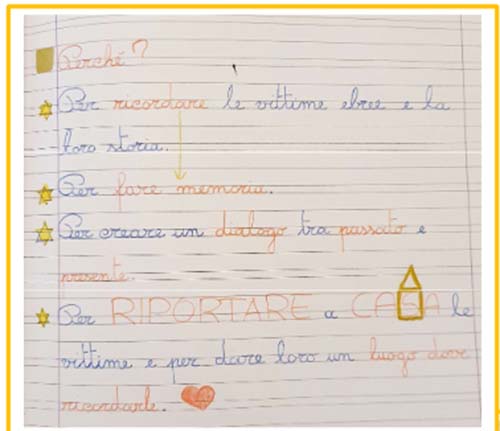 Perché?
Per ricordare le vittime ebree e la
loro storia.
Per fare memoria.
Per creare un dialogo tra passato e
presente.
Per RIPORTARE a CASA le
vittime e per dare loro un luogo dove
ricordarle.